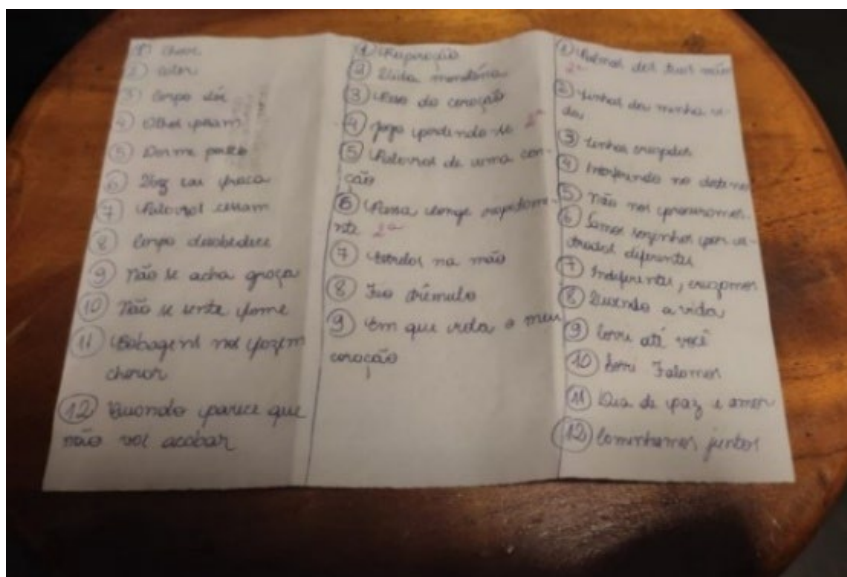 ① Chove
② Calor
③ Corpo dói
④ Olhos pesam
⑤ Dorme pouco
⑥ Voz sai fraca
⑦ Palavras cessam
⑧ Corpo desobedece
⑨ Não se acha graça
⑩ Não se sente fome
⑪ Bobagens nos fazem
chorar
⑫ Quando parece que
não vai acabar
① Respiração
② Vida monótona
③ do coração
④ Jogo perdendo-se 2ª
⑤ Palavras de uma can-
ção
⑥ Passa longe rapidame-
nte 2ª
⑦ Estrelas na mão
⑧ Fio trêmulo
⑨ Em que vida o meu
coração
① das tuas mãos
2ª
② Linhas da minha vi-
da
③ Linhas cruzadas
④ Interferindo no destino
⑤ Não nos procuramos
⑥ Somos sozinhos por es-
tradas diferentes
⑦ Indiferentes, cruzamos
⑧ Quando a vida
⑨ Corri até você
⑩ Sorri Falamos
⑪ Dia de paz e amor
⑫ Caminhamos juntos